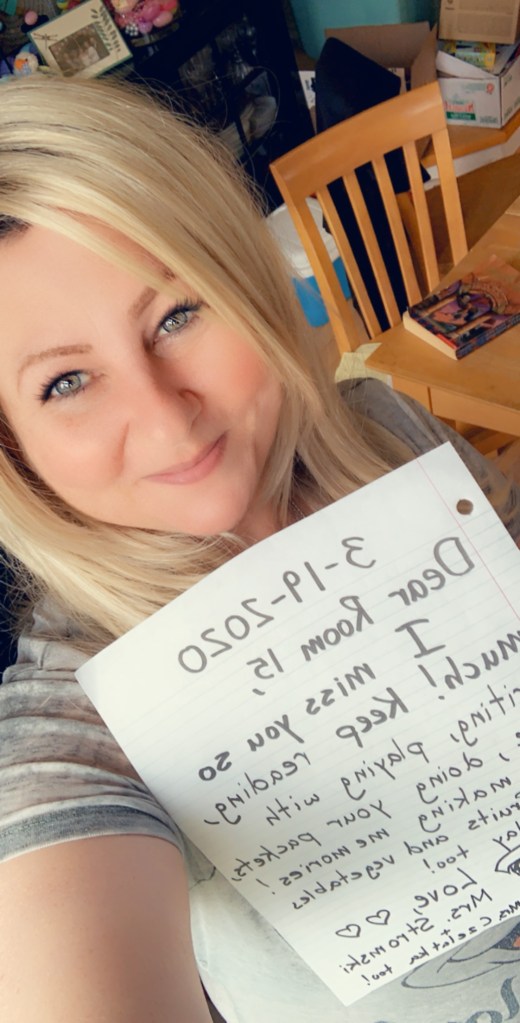 3-19-2020
Dear Room 15,
I miss you so
much! Keep reading,
riting, playing with
doing your packets,
making memories!
ruits and vegetables
too!
Love,
Mrs. Stromski
too!